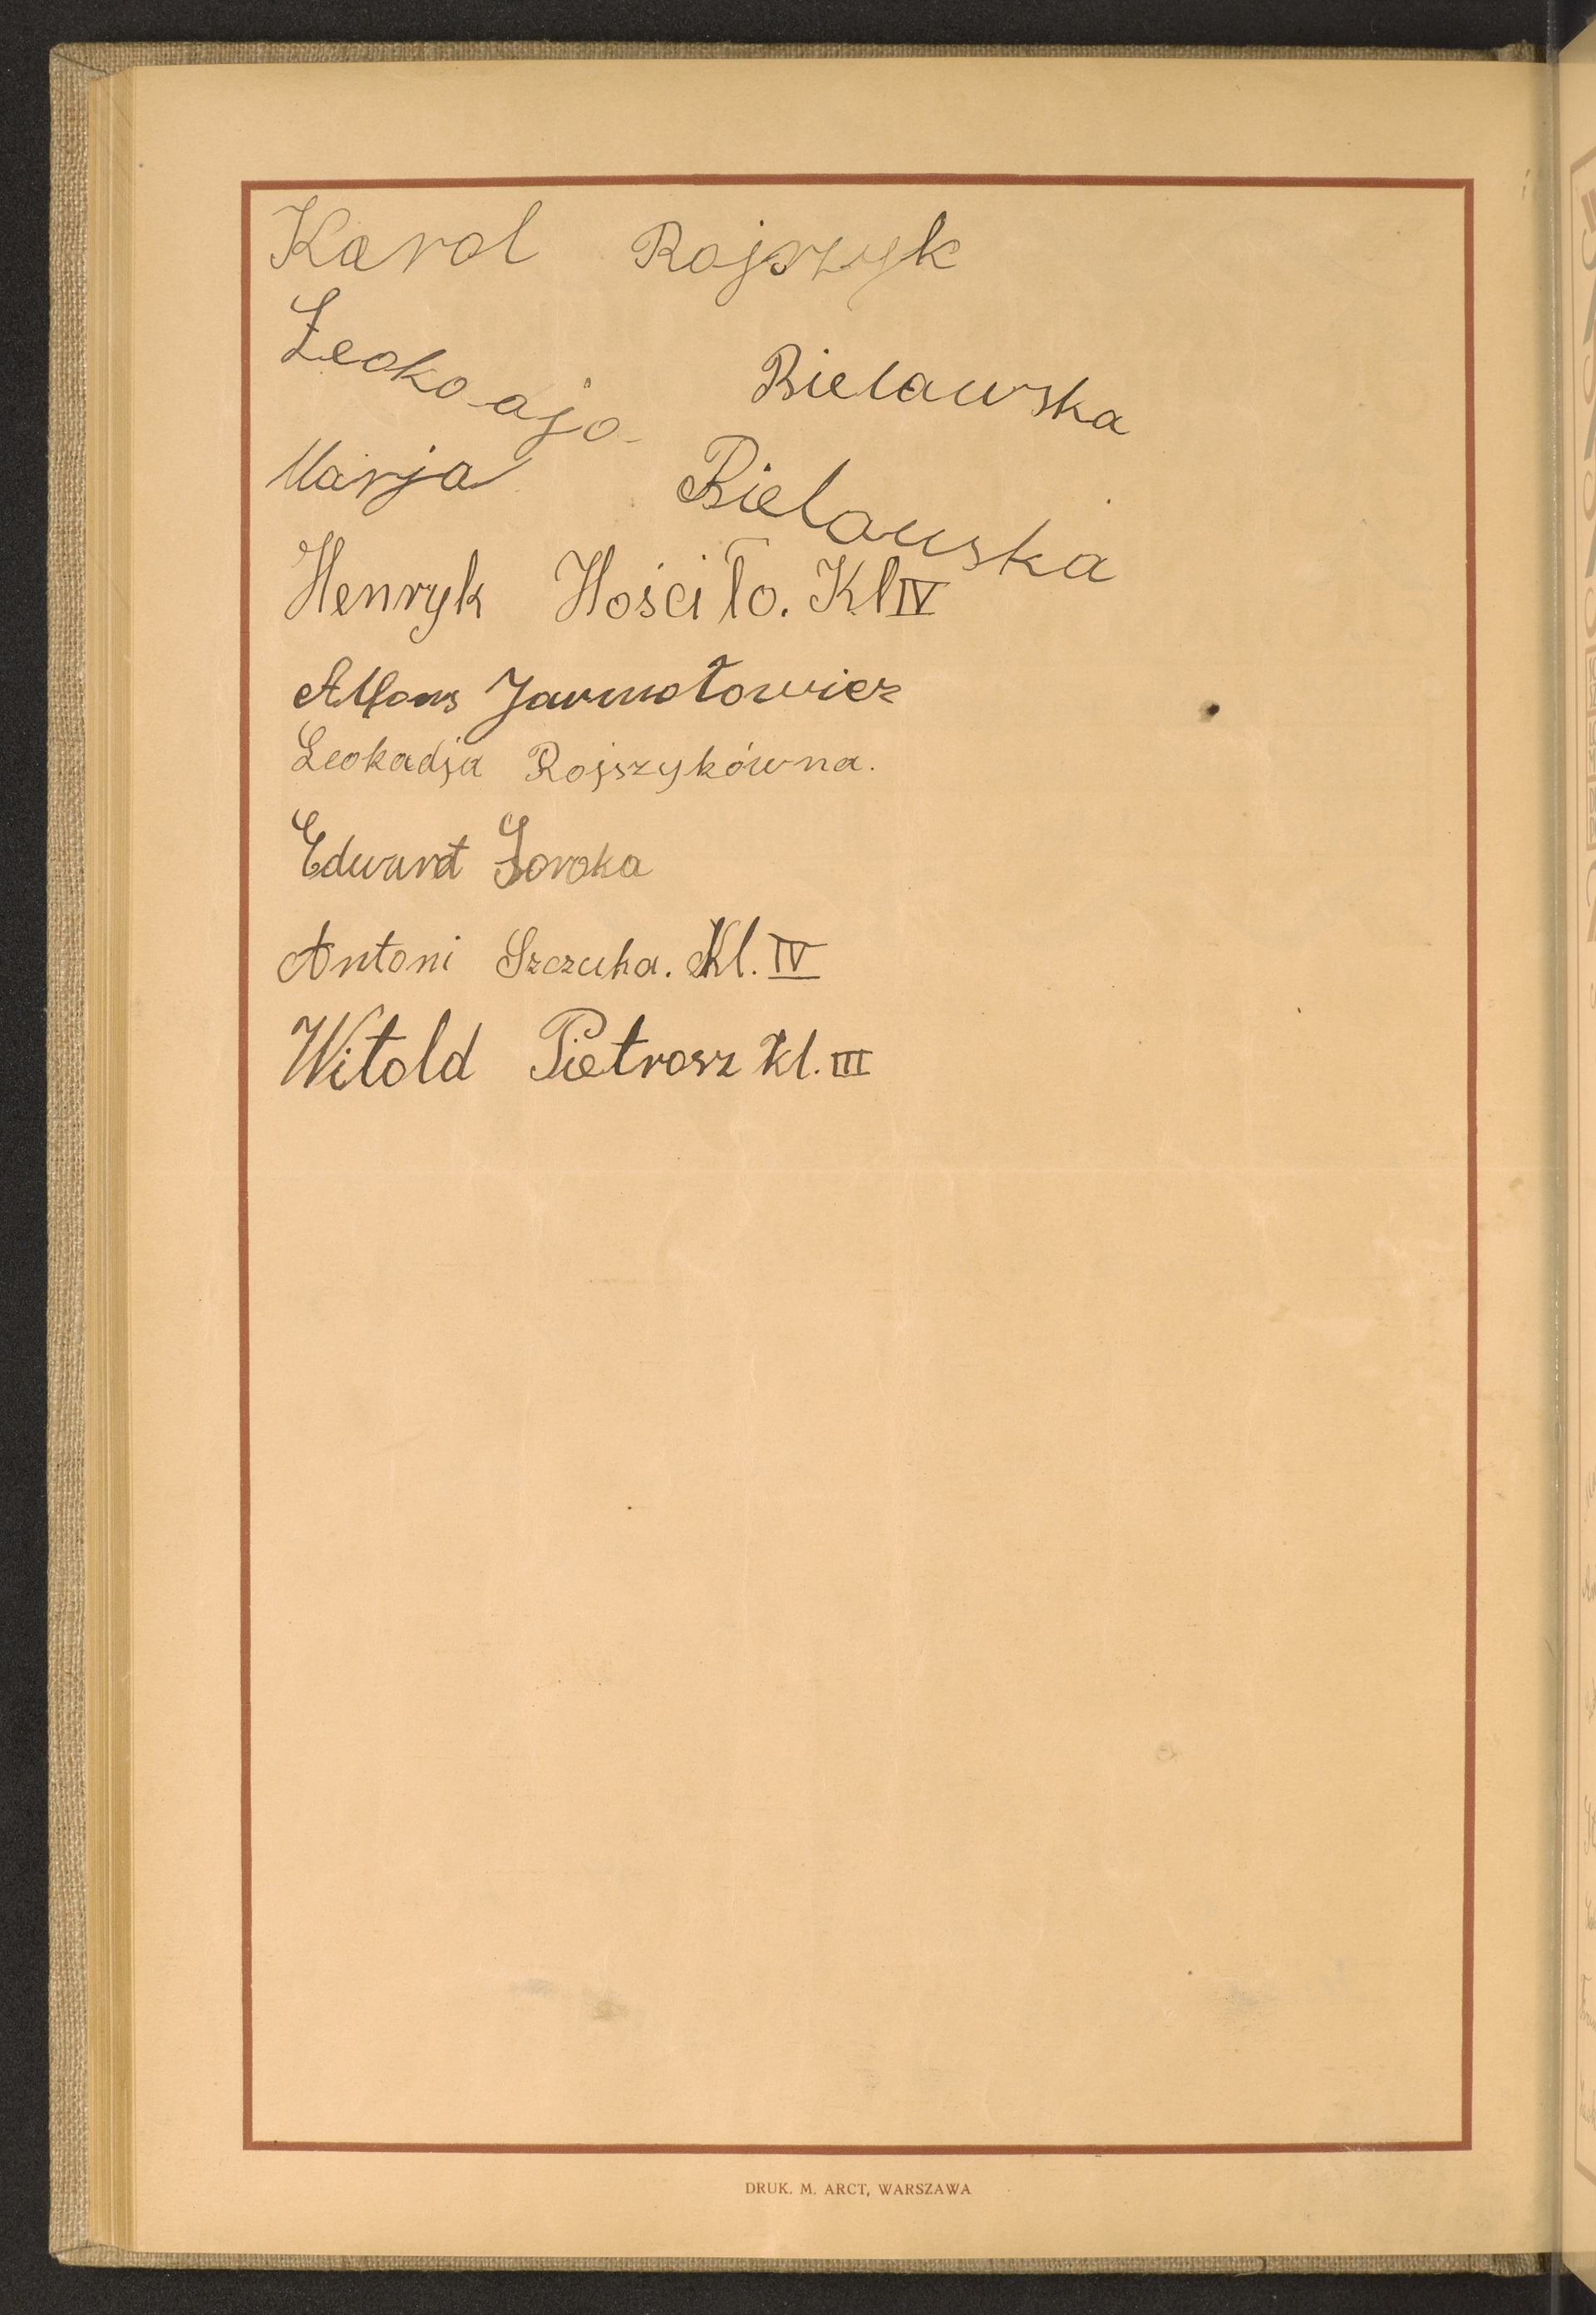 Karol Rojszyk
Leokoajo Bielawska
Marja Bielawska
Henryk Hościło. Kl IV
Alfons Jarmołowicz
Leokadja Rojszykówna.
Edward Soroka
Antoni Szczuka. Kl. IV
Witold Pietrosz kl. III
DRUK. M. ARCT, WARSZAWA